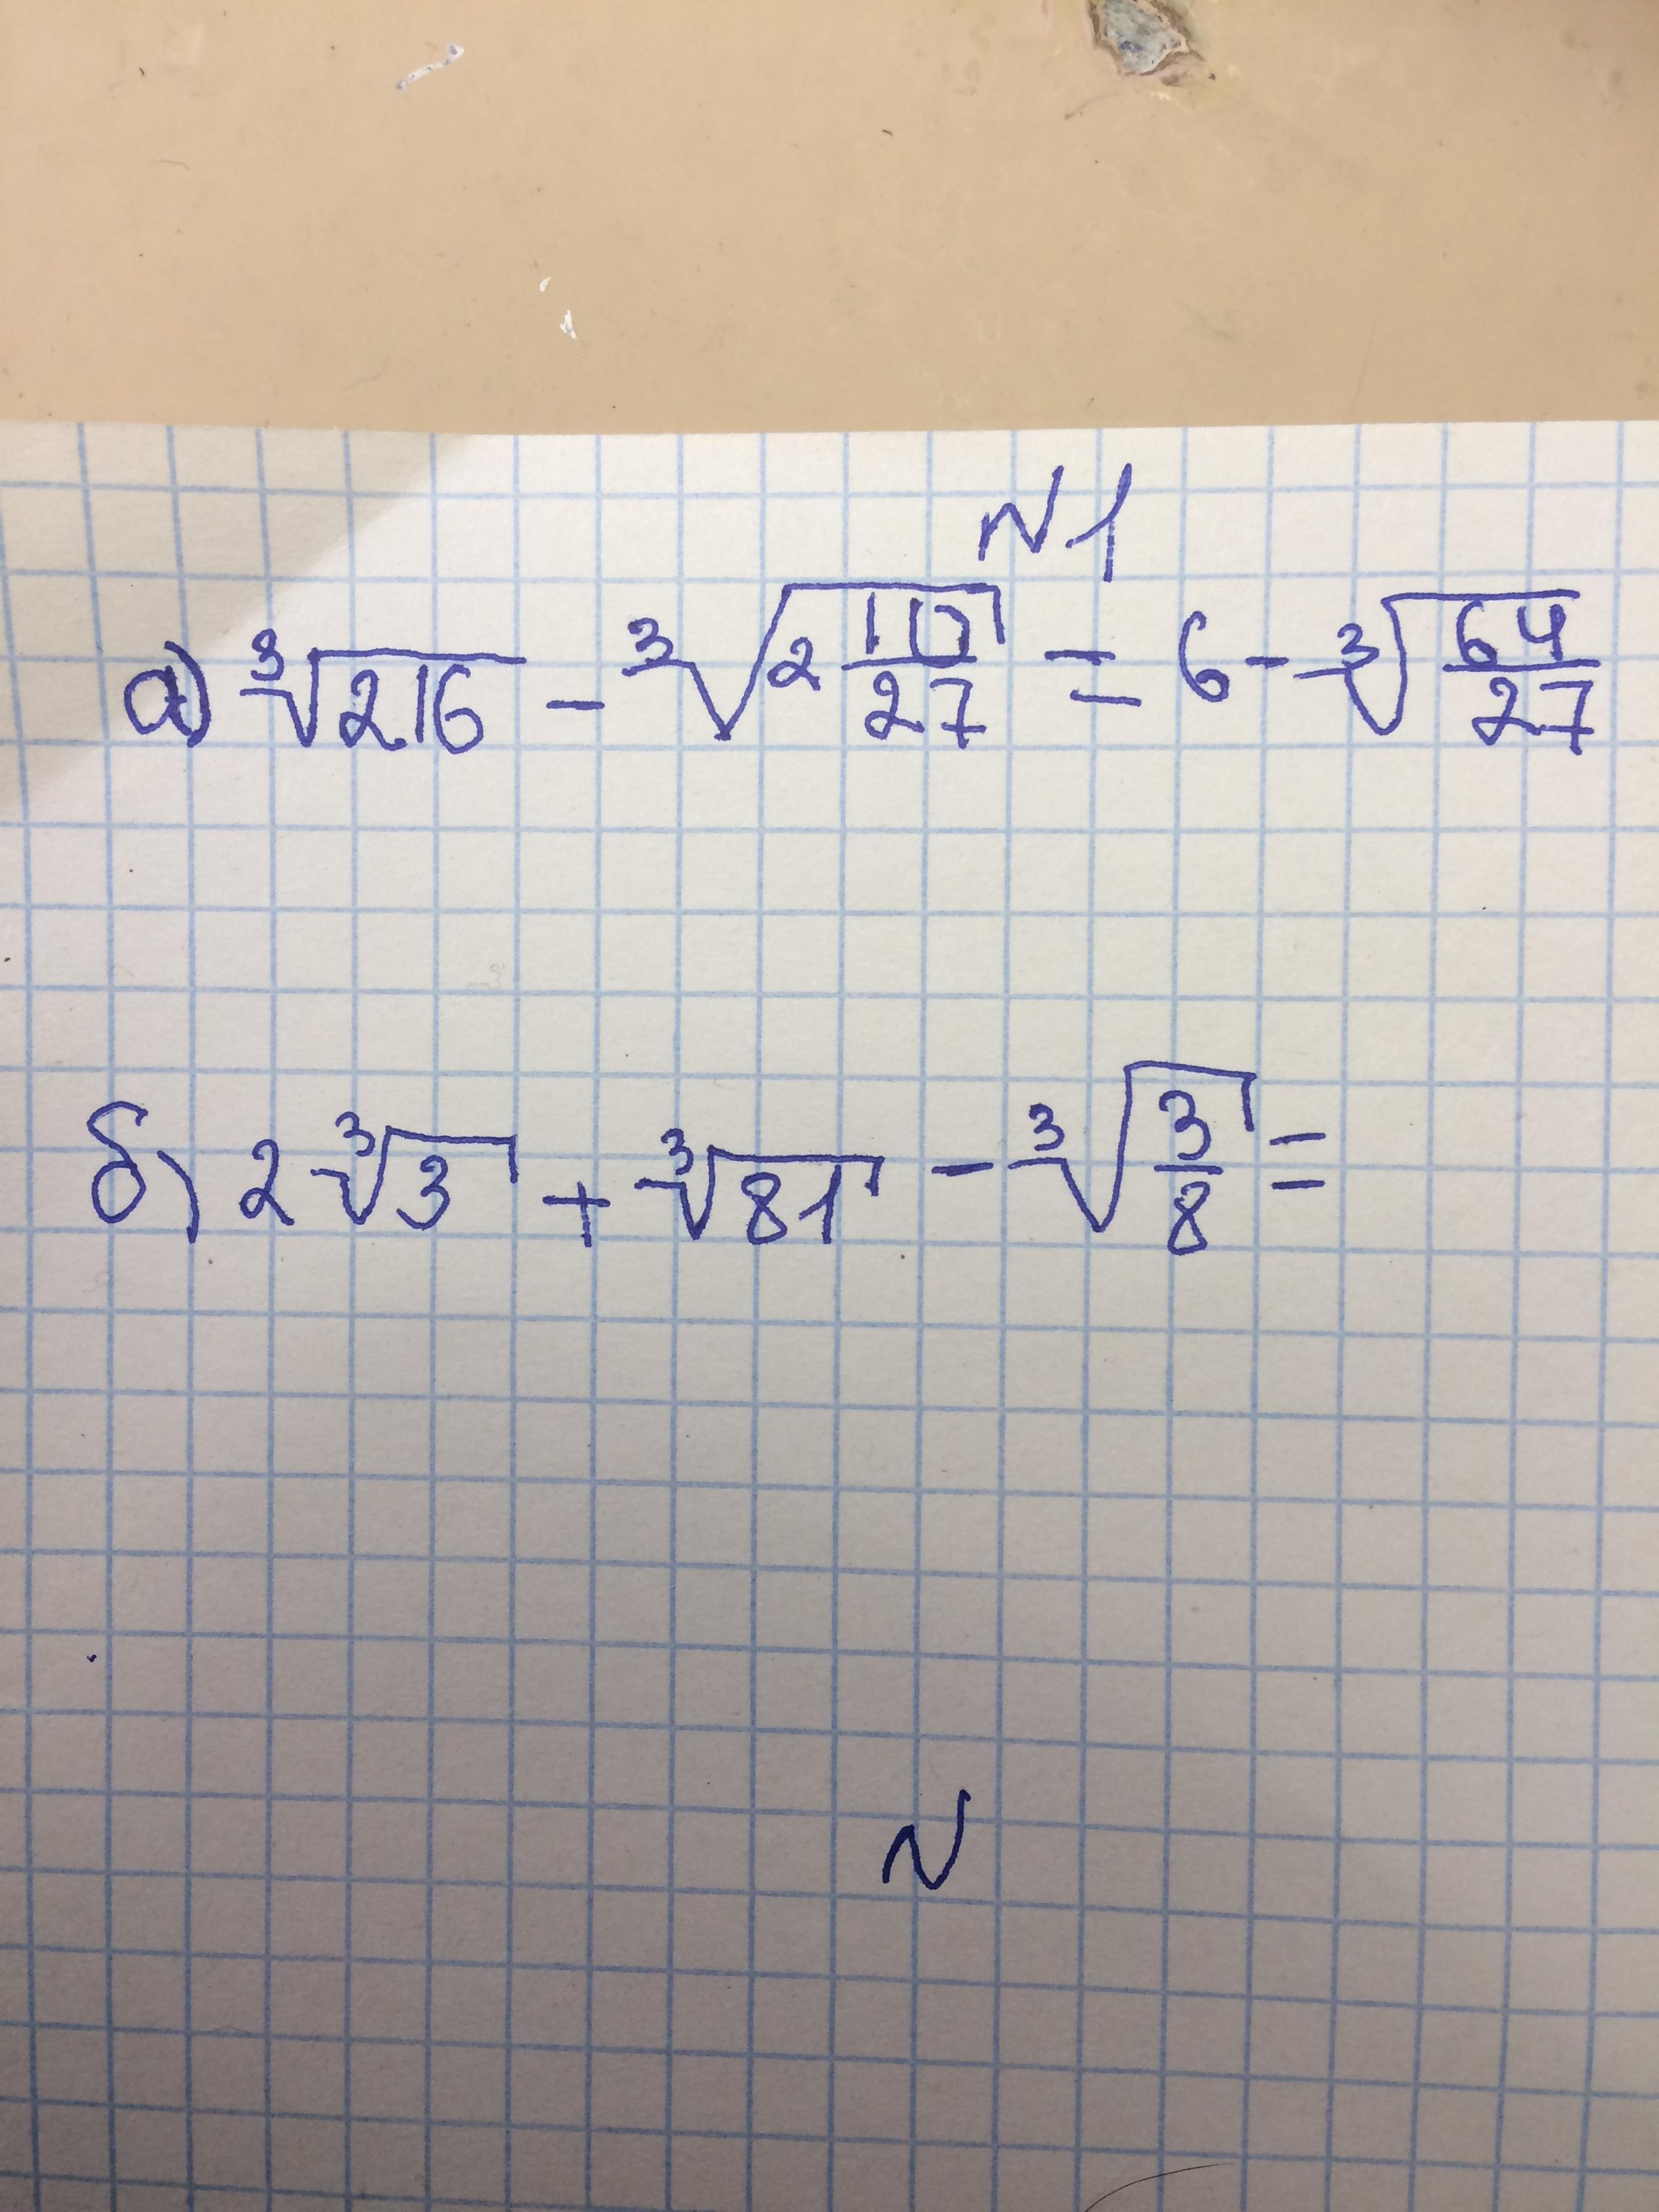 N1
а) ∛216 - ∛(2 10/27) = 6 - ∛(64/27)
б) 2∛3 + ∛81 - ∛(3/8) =
N